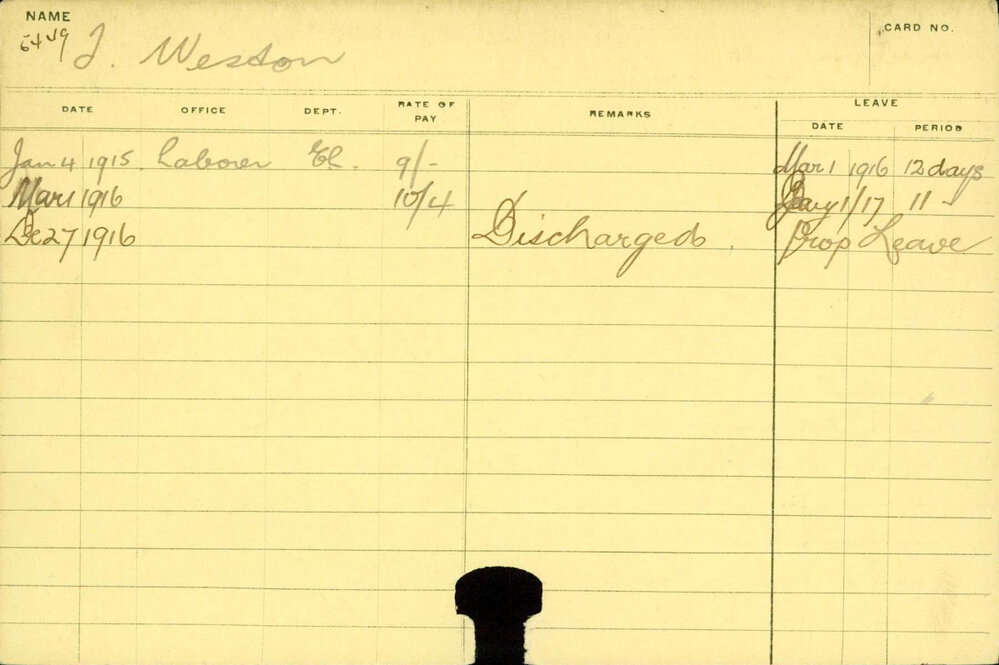 NAME
CARD NO.
J. Weston
DATE OFFICE DEPT. RATE OF PAY REMARKS LEAVE
DATE PERIOD
Jan 4 1915 Laborer El. 9/- Mar 1 1916 12 days
Mar 1 1916 10/4 Jany 1/17 11 "
De 27 1916 Discharged Prop Leave